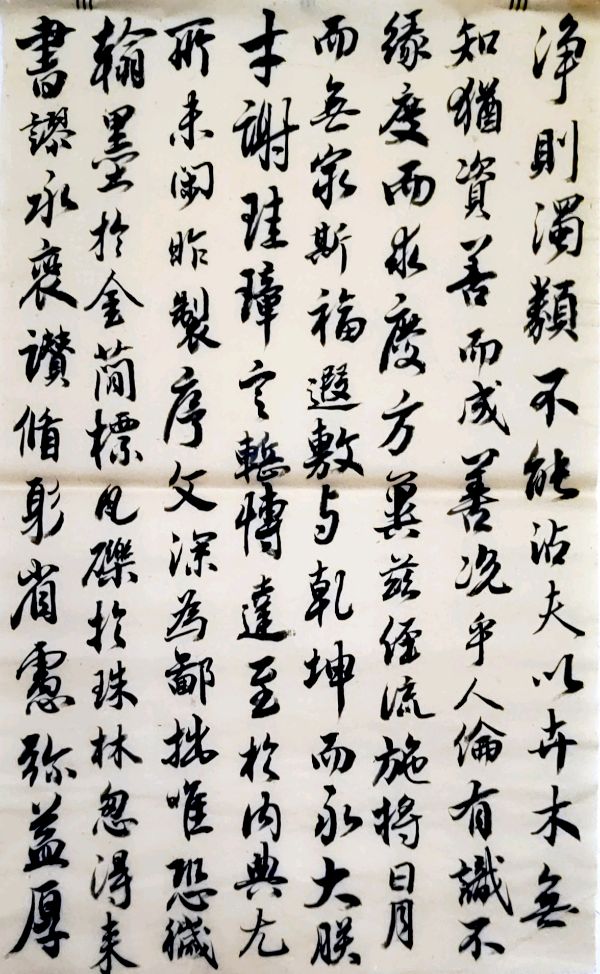 淨則濁類不能沾夫以卉木無
知猶資善而成善況乎人倫有識不
緣慶而求慶方冀茲經流施將日月
而無窮斯福遐敷与乾坤而永大朕
才謝珪璋言慙博達至於內典尤
所未閑昨製序文深為鄙拙唯恐穢
翰墨於金簡標瓦礫於珠林忽得来
書謬承褒讚循躬省慮彌益厚